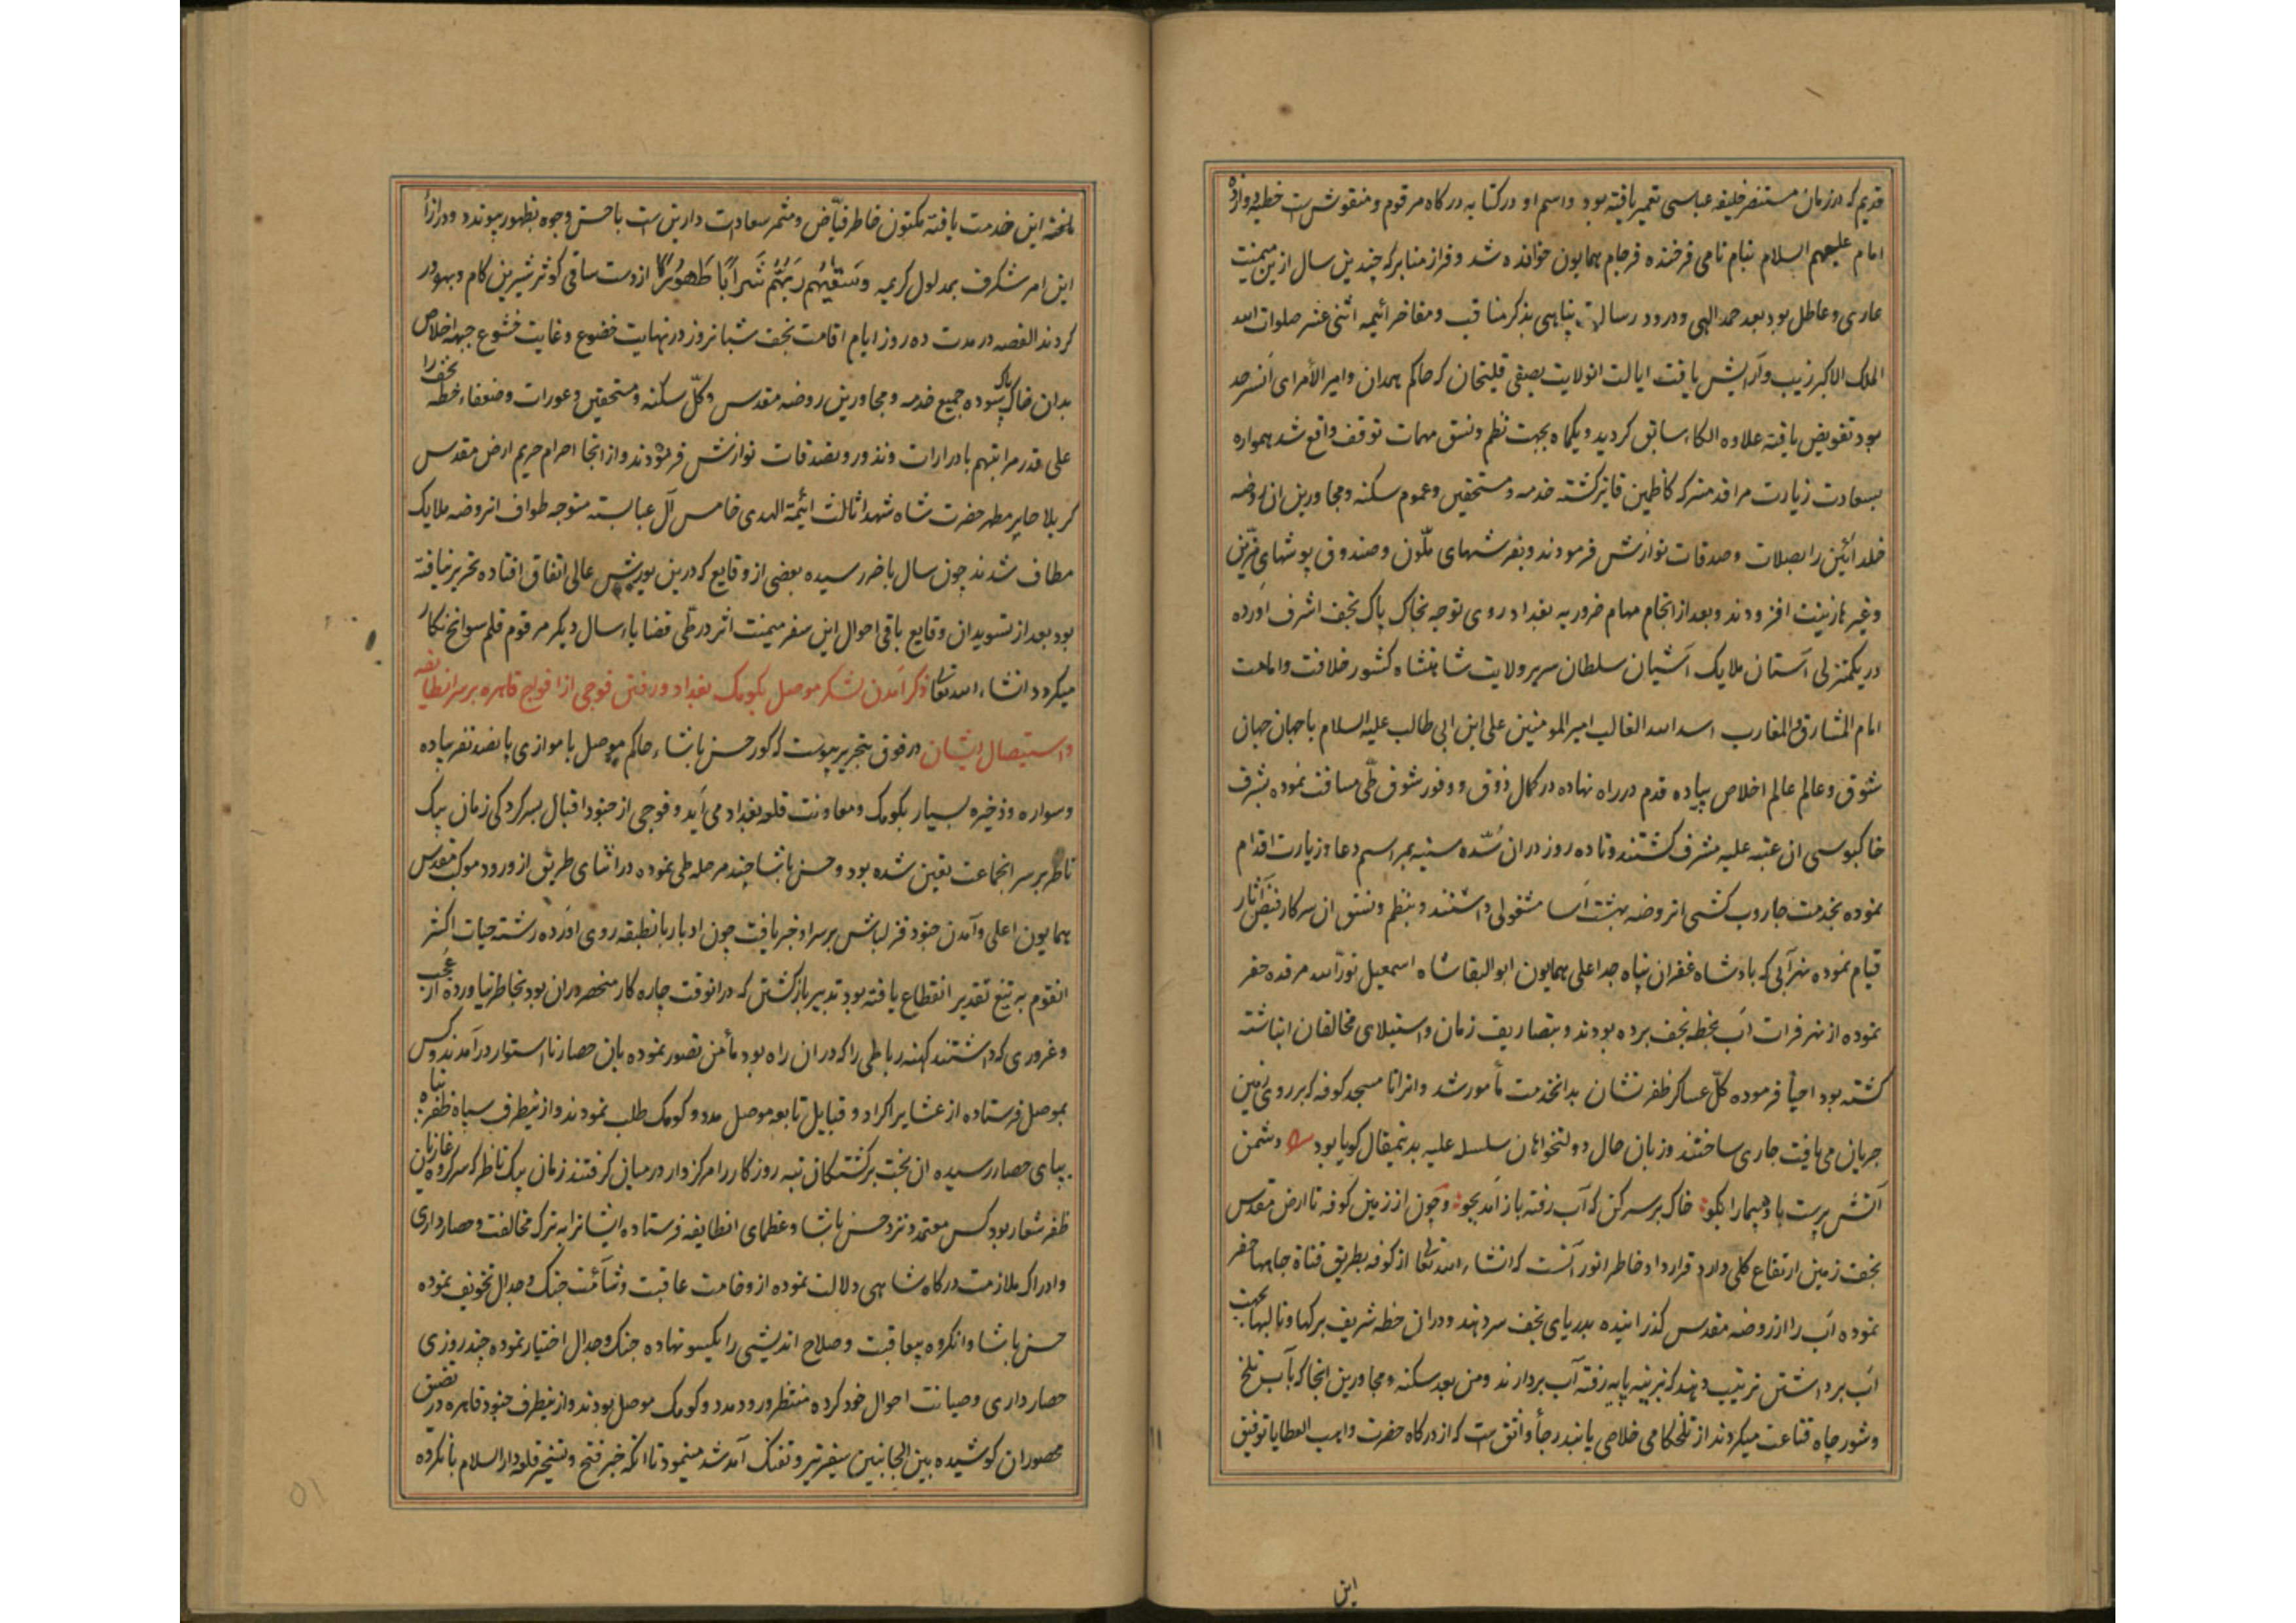 قدیم که در زمان مستنصر خلیفه عباسی تعمیر یافته بود و اسم او در کتابه درکاه مرقوم و منقوش است خطبه دوازده
امام علیهم السلام بنام نامی فرخنده فرجام همایون خوانده شد و فراز منابر که چندین سال ازین میمنت
عاری و عاطل بود بعد حمد الهی و درود رسالت پناهی بذکر مناقب و مفاخر ائیمه اثنی عشر صلوات الله
الملک الاکبر زیب و آرایش یافت ایالت انولایت بصفی قلیخان که حاکم همدان و امیر الأمرای آنسرحد
بود تفویض یافته علاوه الکاء سابق کردید و یکماه بجهت نظم و نسق مهمات توقف واقع شد همواره
بسعادت زیارت مراقد متبرکه کاظمین فایز کشته خدمه و مستحقین و عموم سکنه و مجاورین ان روضه
خلد ائین را بصلات و صدقات نوازش فرمودند و بفرشهای ملّون و صندوق پوشهای مزّین
و غیرها زینت افزودند و بعد از انجام مهام ضروریه بغداد روی توجه بخاک پاک نجف اشرف آورده
در یکمنزلی آستان ملایک آشیان سلطان سریر ولایت شاهنشاه کشور خلافت و امامت
امام المشارق و المغارب اسد الله الغالب امیر المومنین علی ابن ابی طالب علیه السلام با جهان جهان
شوق و عالم عالم اخلاص پیاده قدم در راه نهاده در کمال ذوق و وفور شوق طّی مسافت نموده بشرف
خاکبوسی ان عتبه علیه مشرف کشتند و تا ده روز دران سُدّه سنیه بمراسم دعا و زیارت اقدام
نموده بخدمت جاروب کشی انروضه بهشت آسا مشغولی داشتند و بنظم و نسق ان سرکار فیض آثار
قیام نموده نهر آبی که پادشاه غفران پناه جد اعلی همایون ابو البقا شاه اسمعیل نوّر الله مرقده حفر
نموده از نهر فرات آب بخطه نجف برده بودند و بتصاریف زمان و استیلای مخالفان انباشته
کشته بود احیأ فرموده کلّ عساکر ظفر نشان بدانخدمت مأمور شد و انرا تا مسجد کوفه که بر روی زمین
جریان می یافت جاری ساختند و زبان حال دولتخواهان سلسله علیه بدینمقال کویا بود دشمن
آتش پرست باد پیما را بکو خاک بر سر کن که آب رفته باز آمد بجو و چون از زمین کوفه تا ارض مقدس
نجف زمین ارتفاع کلی دارد قرارداد خاطر انور آنست که انشاء الله تعالی از کوفه بطریق قناة چاهها حفر
نموده آب را از روضه مقدس کذرانیده بدریای نجف سر دهند و دران خطه شریف برکها و تالبها بجهت
آب برداشتن ترتیب دهند که بزینه پایه رفته آب بردارند و من بعد سکنه و مجاورین انجا که بآب تلخ
و شور چاه قناعت میکردند از تلخکامی خلاصی یابند رجأ واثق ست که از درکاه حضرت واهب العطایا توفیق
این
این خدمت یافته مکنون خاطر فیّاض و مثمر سعادت دارین ست باحسن وجوه بظهور پیوندد و در ازأ
این امر شکرف بمدلول کریمه وَسَقٰیهُم رَبُّهُم شَرابًا طَهُورًا از دست ساقی کوثر شیرین کام و بهره‌ور
کردند القصه در مدت ده روز ایام اقامت نجف شبانروز در نهایت خضوع و غایت خشوع جبهه اخلاص
بدان خاک پاک سوده جمیع خدمه و مجاورین روضه مقدس و کلّ سکنه و مستحقین و عورات و ضعفاء خطه نجف را
علی قدر مراتبهم بادرارات و نذور و تصدقات نوازش فرمودند و از انجا احرام حریم ارض مقدس
کربلا حایر مطهر حضرت شاه شهدا ثالث ائیمة الهدی خامس آل عبا بسته متوجه طواف انروضه ملایک
مطاف شدند چون سال باخر رسیده بعضی از وقایع که درین یورش عالی اتفاق افتاده تحریر نیافته
بود بعد از تسوید ان وقایع باقی احوال این سفر میمنت اثر در طّی قضایاء سال دیکر مرقوم قلم سوانح نکار
میکردد انشاء الله تعالی ذکر آمدن لشکر موصل بکومک بغداد و رفتن فوجی از افواج قاهره بر سر انطایفه
و استیصال ایشان در فوق بتحریر پیوست که کور حسن پاشاء حاکم موصل با موازی پانصد نفر پیاده
و سواره و ذخیره بسیار بکومک و معاونت قلعه بغداد می آید و فوجی از جنود اقبال بسرکردکی زمان بیک
ناظر بر سر انجماعت تعین شده بود و حسن پاشا چند مرحله طی نموده در اثنای طریق از ورود موکب مقدس
همایون اعلی و آمدن جنود قزلباش بر سر او خبر یافت چون ادبار بانطبقه روی آورده رشته حیات اکثر
انقوم به تیغ تقدیر انقطاع یافته بود تدبیر بازکشتن که درانوقت چاره کار منحصر دران بود بخاطر نیاورده از عجب
و غروری که داشتند کهنه رباطی را که دران راه بود مأمن تصور نموده بان حصار نااستوار درآمدند و کس
بموصل فرستاده از عشایر اکراد و قبایل تابعه موصل مدد و کومک طلب نمودند و از نیطرف سپاه ظفر پناه
بپای حصار رسیده ان بخت برکشتکان تبه روزکار را مرکزوار در میان کرفتند زمان بیک ناظر که سرکرده غازیان
ظفر شعار بود کس معتمد و نزد حسن پاشا و عظمای انطایفه فرستاده ایشانرا به ترک مخالفت و حصارداری
و ادراک ملازمت درکاه شاهی دلالت نموده از وخامت عاقبت و شأمت جنک و جدال تخویف نموده
حسن پاشا و انکروه بیعاقبت و صلاح اندیشی را یکسو نهاده جنک و جدال اختیار نموده چند روزی
حصارداری و صیانت احوال خود کرده منتظر ورود مدد و کومک موصل بودند و از نیطرف جنود قاهره در تضیق
محصوران کوشیده بین الجانبین سفیر تیر و تفنک آمد شد مینمود تا انکه خبر فتح و تسخیر قلعه دار السلام بانکروه